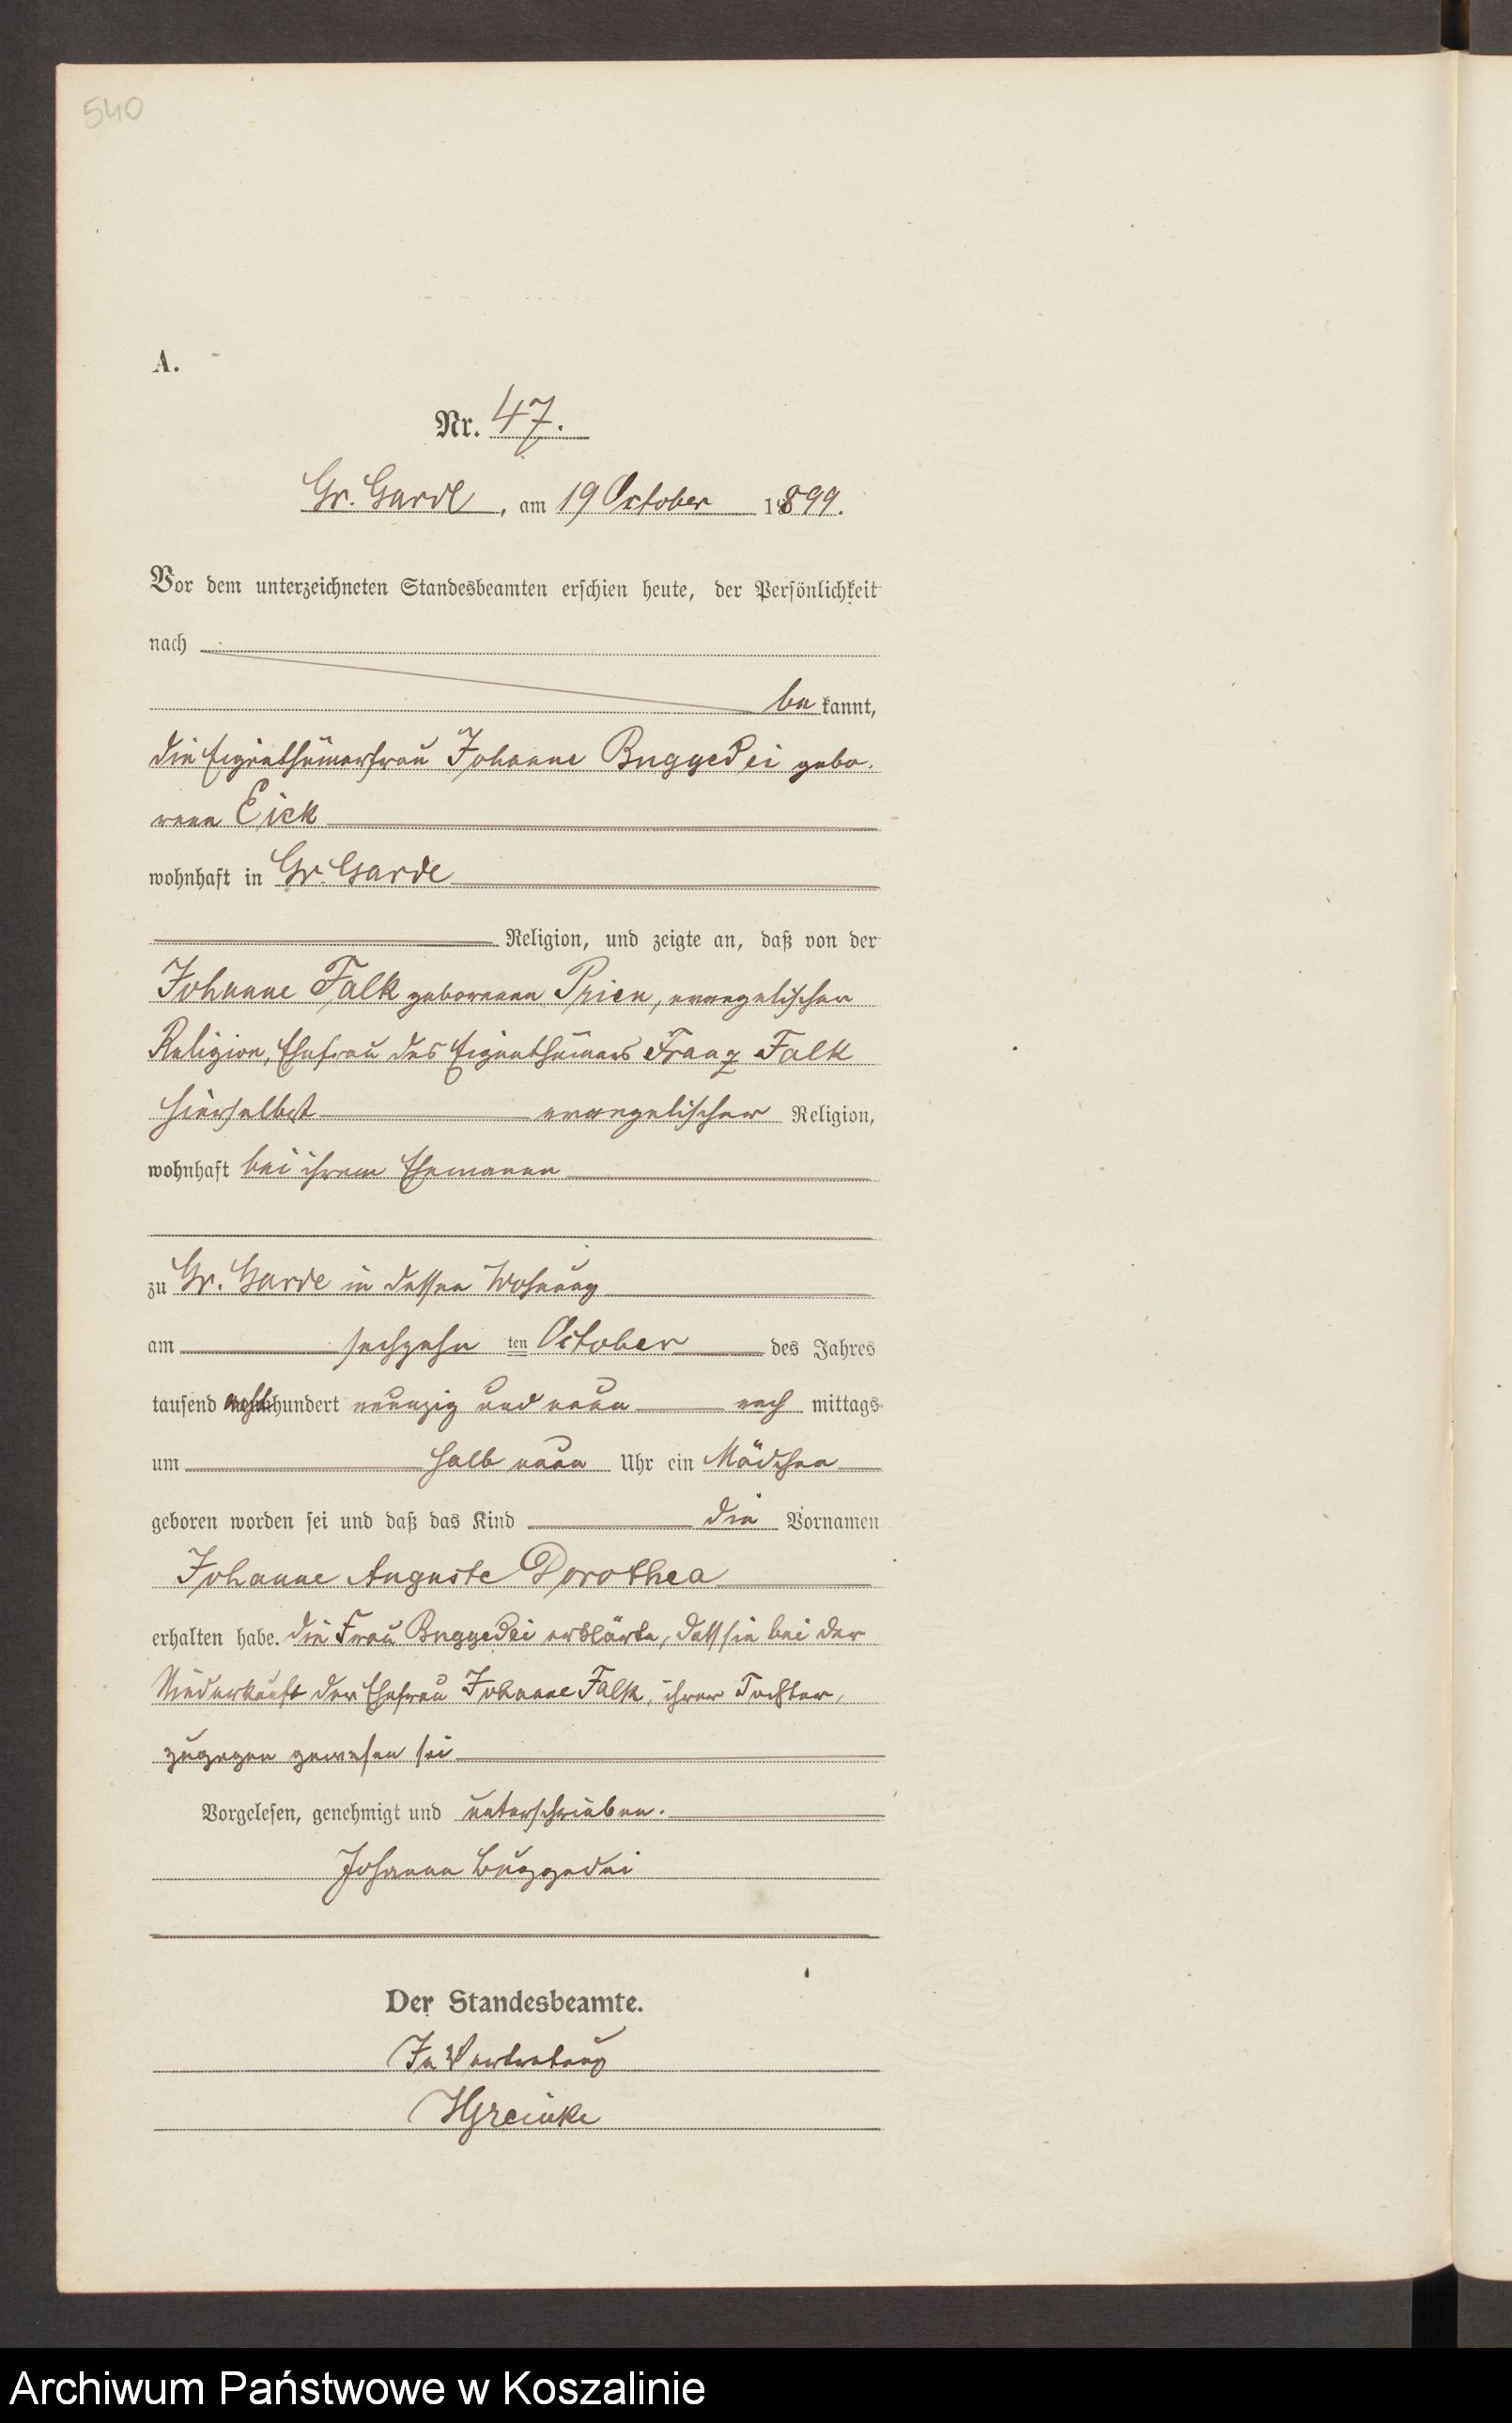 540
A.
Nr. 47.
Gr. Garde, am 19 October 1899.
Vor dem unterzeichneten Standesbeamten erschien heute, der Persönlichkeit
nach
be kannt,
die Eigenthümerfrau Johanne Buggedei gebo-
rene Eick
wohnhaft in Gr. Garde
Religion, und zeigte an, daß von der
Johanne Falk geborenen Prien, evangelischer
Religion, Ehefrau des Eigenthümers Franz Falk
hierselbst evangelischer Religion,
wohnhaft bei ihrem Ehemanne
zu Gr. Garde in dessen Wohnung
am sechzehn ten October des Jahres
tausend achthundert neunzig und neun nach mittags
um halb neun Uhr ein Mädchen
geboren worden sei und daß das Kind die Vornamen
Johanne Auguste Dorothea
erhalten habe. Die Frau Buggedei erklärte, daß sie bei der
Niederkunft der Ehefrau Johanne Falk, ihrer Tochter,
zugegen gewesen sei
Vorgelesen, genehmigt und unterschrieben.
Johanne Buggedei
Der Standesbeamte.
In Vertretung
HGreinke
Archiwum Państwowe w Koszalinie